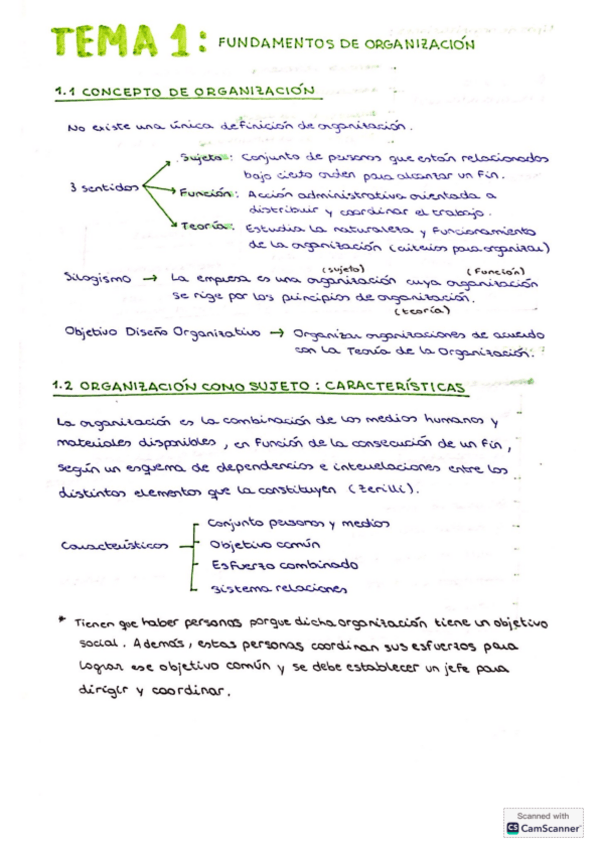 TEMA 1: FUNDAMENTOS DE ORGANIZACIÓN
1.1 CONCEPTO DE ORGANIZACIÓN
No existe una única definición de organización.
3 sentidos
Sujeto: Conjunto de personas que están relacionados
bajo cierto orden para alcanzar un fin.
Función: Acción administrativa orientada a
distribuir y coordinar el trabajo.
Teoría: Estudia la naturaleza y funcionamiento
de la organización (criterios para organizar)
(sujeto) (función)
Silogismo → La empresa es una organización cuya organización
se rige por los principios de organización.
(teoría)
Objetivo Diseño Organizativo → Organizar organizaciones de acuerdo
con la Teoría de la Organización.
1.2 ORGANIZACIÓN COMO SUJETO: CARACTERÍSTICAS
La organización es la combinación de los medios humanos y
materiales disponibles, en función de la consecución de un fin,
según un esquema de dependencias e interrelaciones entre los
distintos elementos que la constituyen (Zerilli).
Características
Conjunto personas y medios
Objetivo común
Esfuerzo combinado
Sistema relaciones
* Tienen que haber personas porque dicha organización tiene un objetivo
social. Además, estas personas coordinan sus esfuerzos para
lograr ese objetivo común y se debe establecer un jefe para
dirigir y coordinar.
Scanned with
CS CamScanner